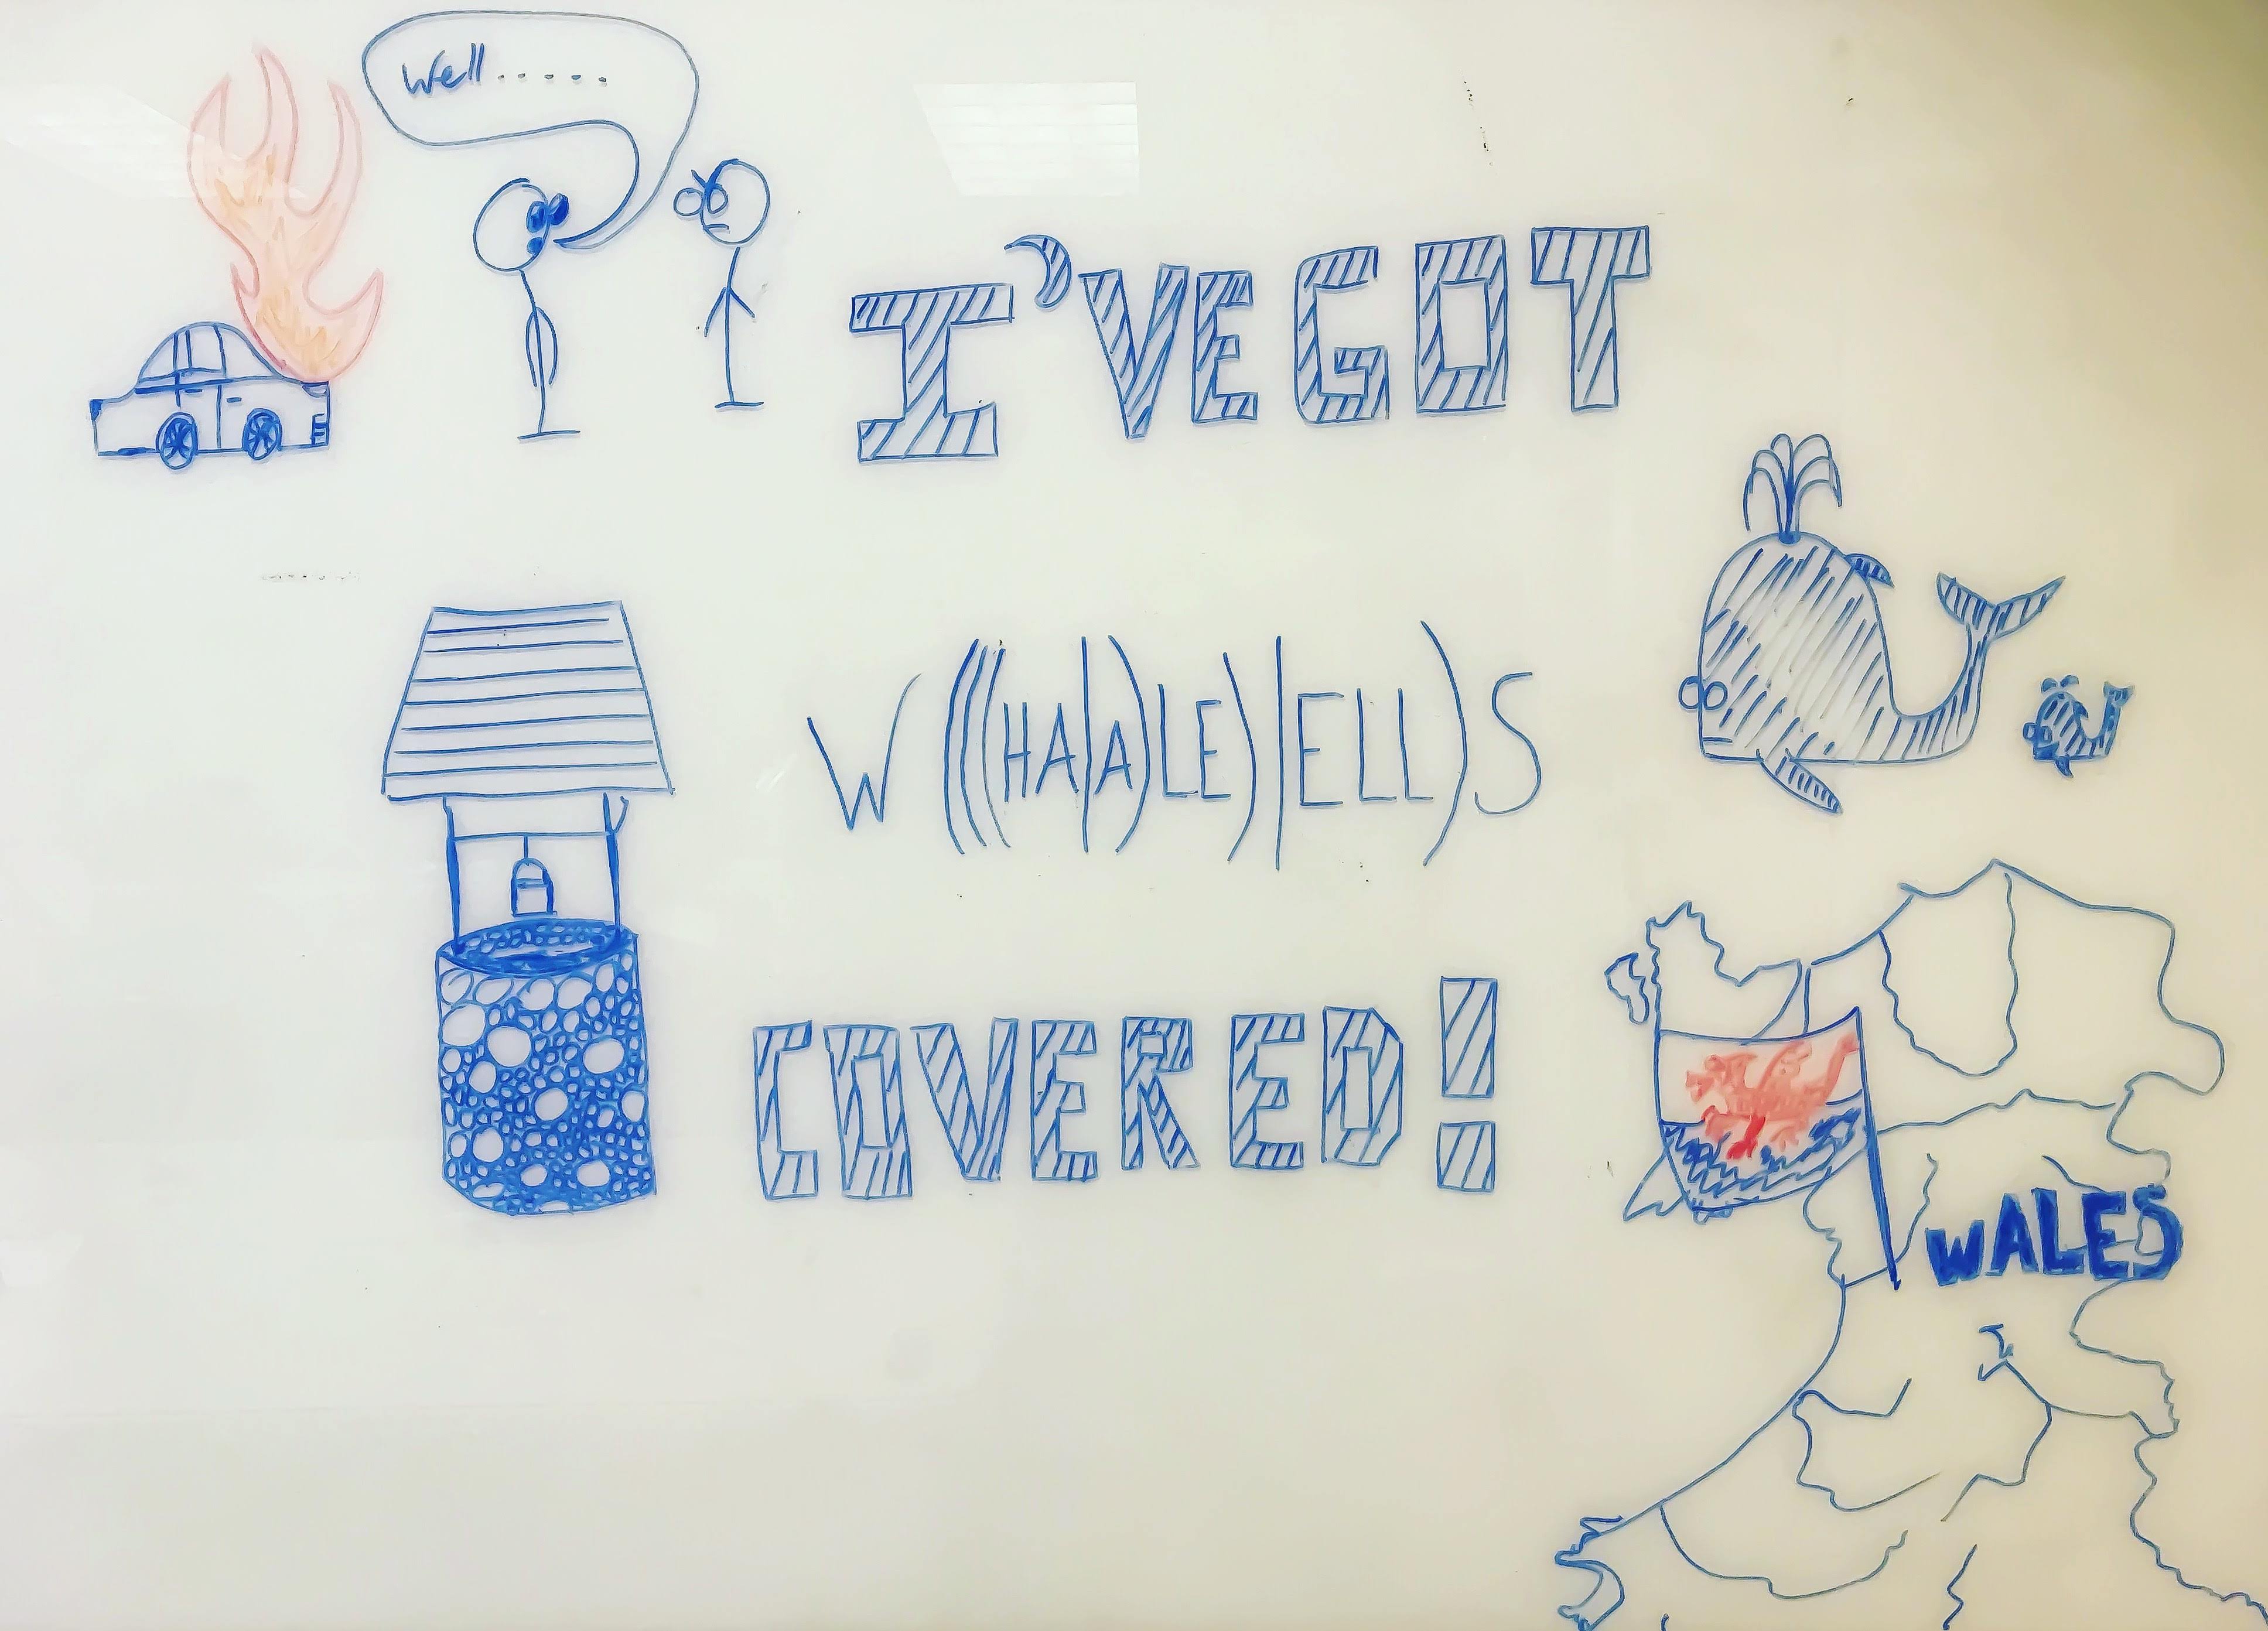 Well.....
I'VE GOT
W(((HA|A)LE)|ELL)S
COVERED!
WALES